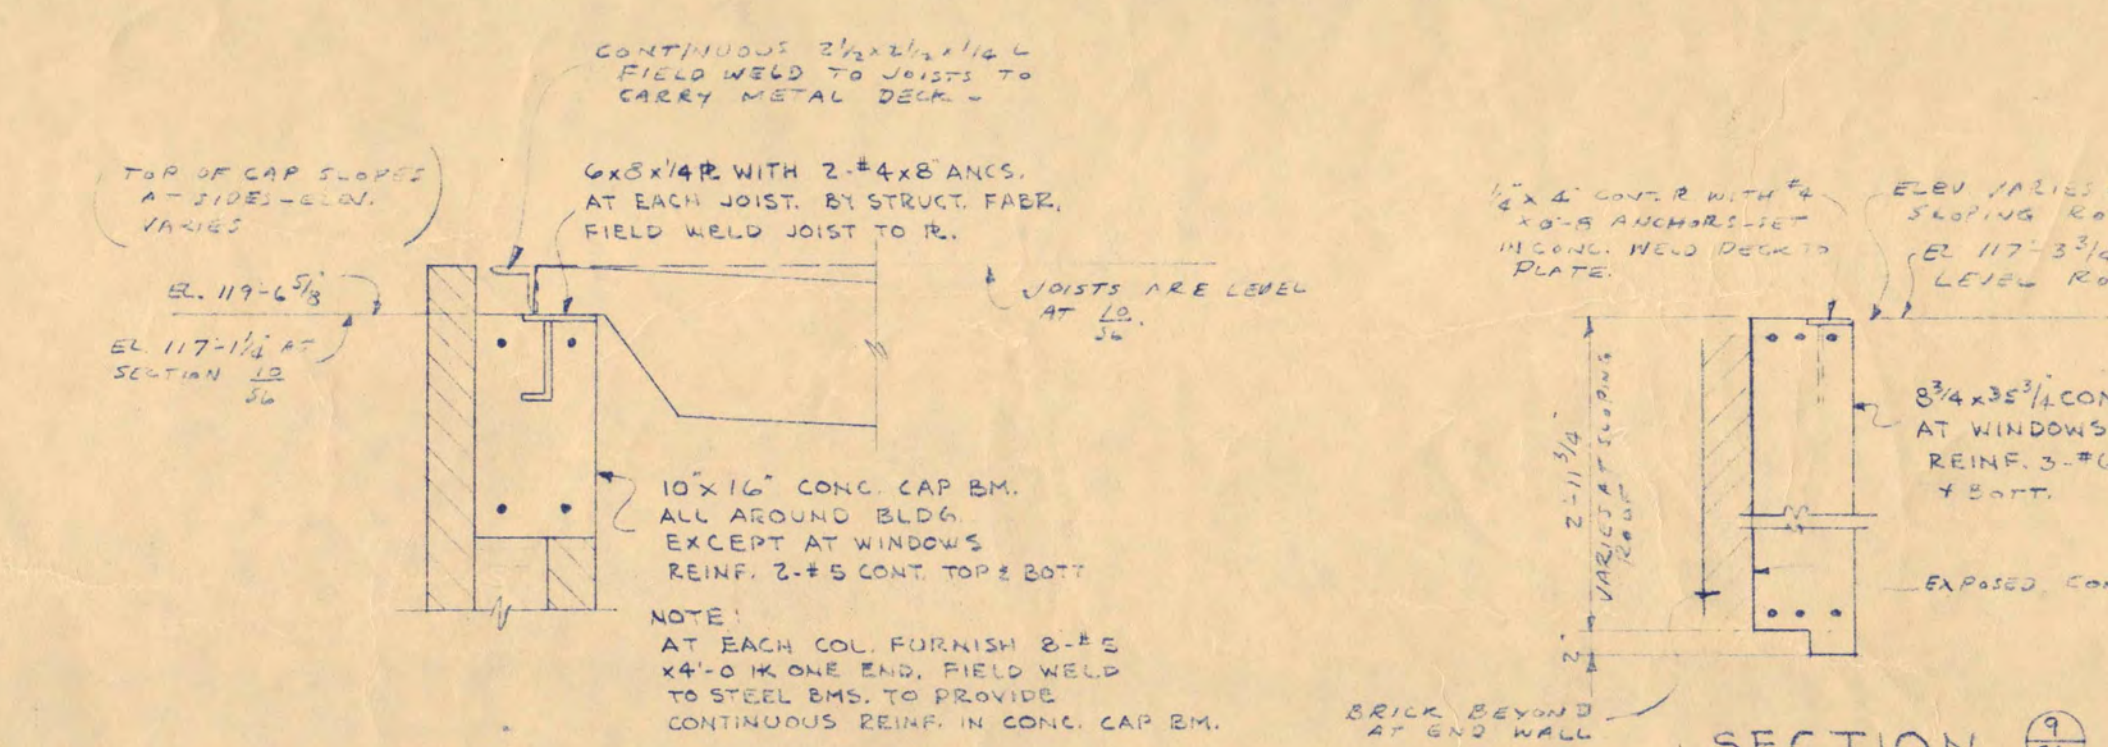 CONTINUOUS 2½x2½x¼ L
FIELD WELD TO JOISTS TO
CARRY METAL DECK -
TOP OF CAP SLOPES
AT SIDES - ELEV.
VARIES
6x8x¼ ℞ WITH 2-#4x8" ANCS.
AT EACH JOIST. BY STRUCT. FABR.
FIELD WELD JOIST TO ℞.
EL. 119'-6⅝"
EL. 117'-1¼" AT
SECTION 10
56
JOISTS ARE LEVEL
AT 10
56.
10"x16" CONC. CAP BM.
ALL AROUND BLDG.
EXCEPT AT WINDOWS
REINF. 2-#5 CONT. TOP & BOTT
NOTE:
AT EACH COL. FURNISH 8-#5
x4'-0 HK ONE END. FIELD WELD
TO STEEL BMS. TO PROVIDE
CONTINUOUS REINF. IN CONC. CAP BM.
¼"x4" CONT. ℞ WITH #4
x0'-8 ANCHORS-SET
IN CONC. WELD DECK TO
PLATE.
ELEV. VARIES
SLOPING RO
EL 117'-3¾
LEVEL RO
2'-11¾"
VARIES AT SLOPING
ROOF
2"
8¾x35¾" CON
AT WINDOWS
REINF. 3-#6
& BOTT.
EXPOSED CON
BRICK BEYOND
AT END WALL
SECTION 9